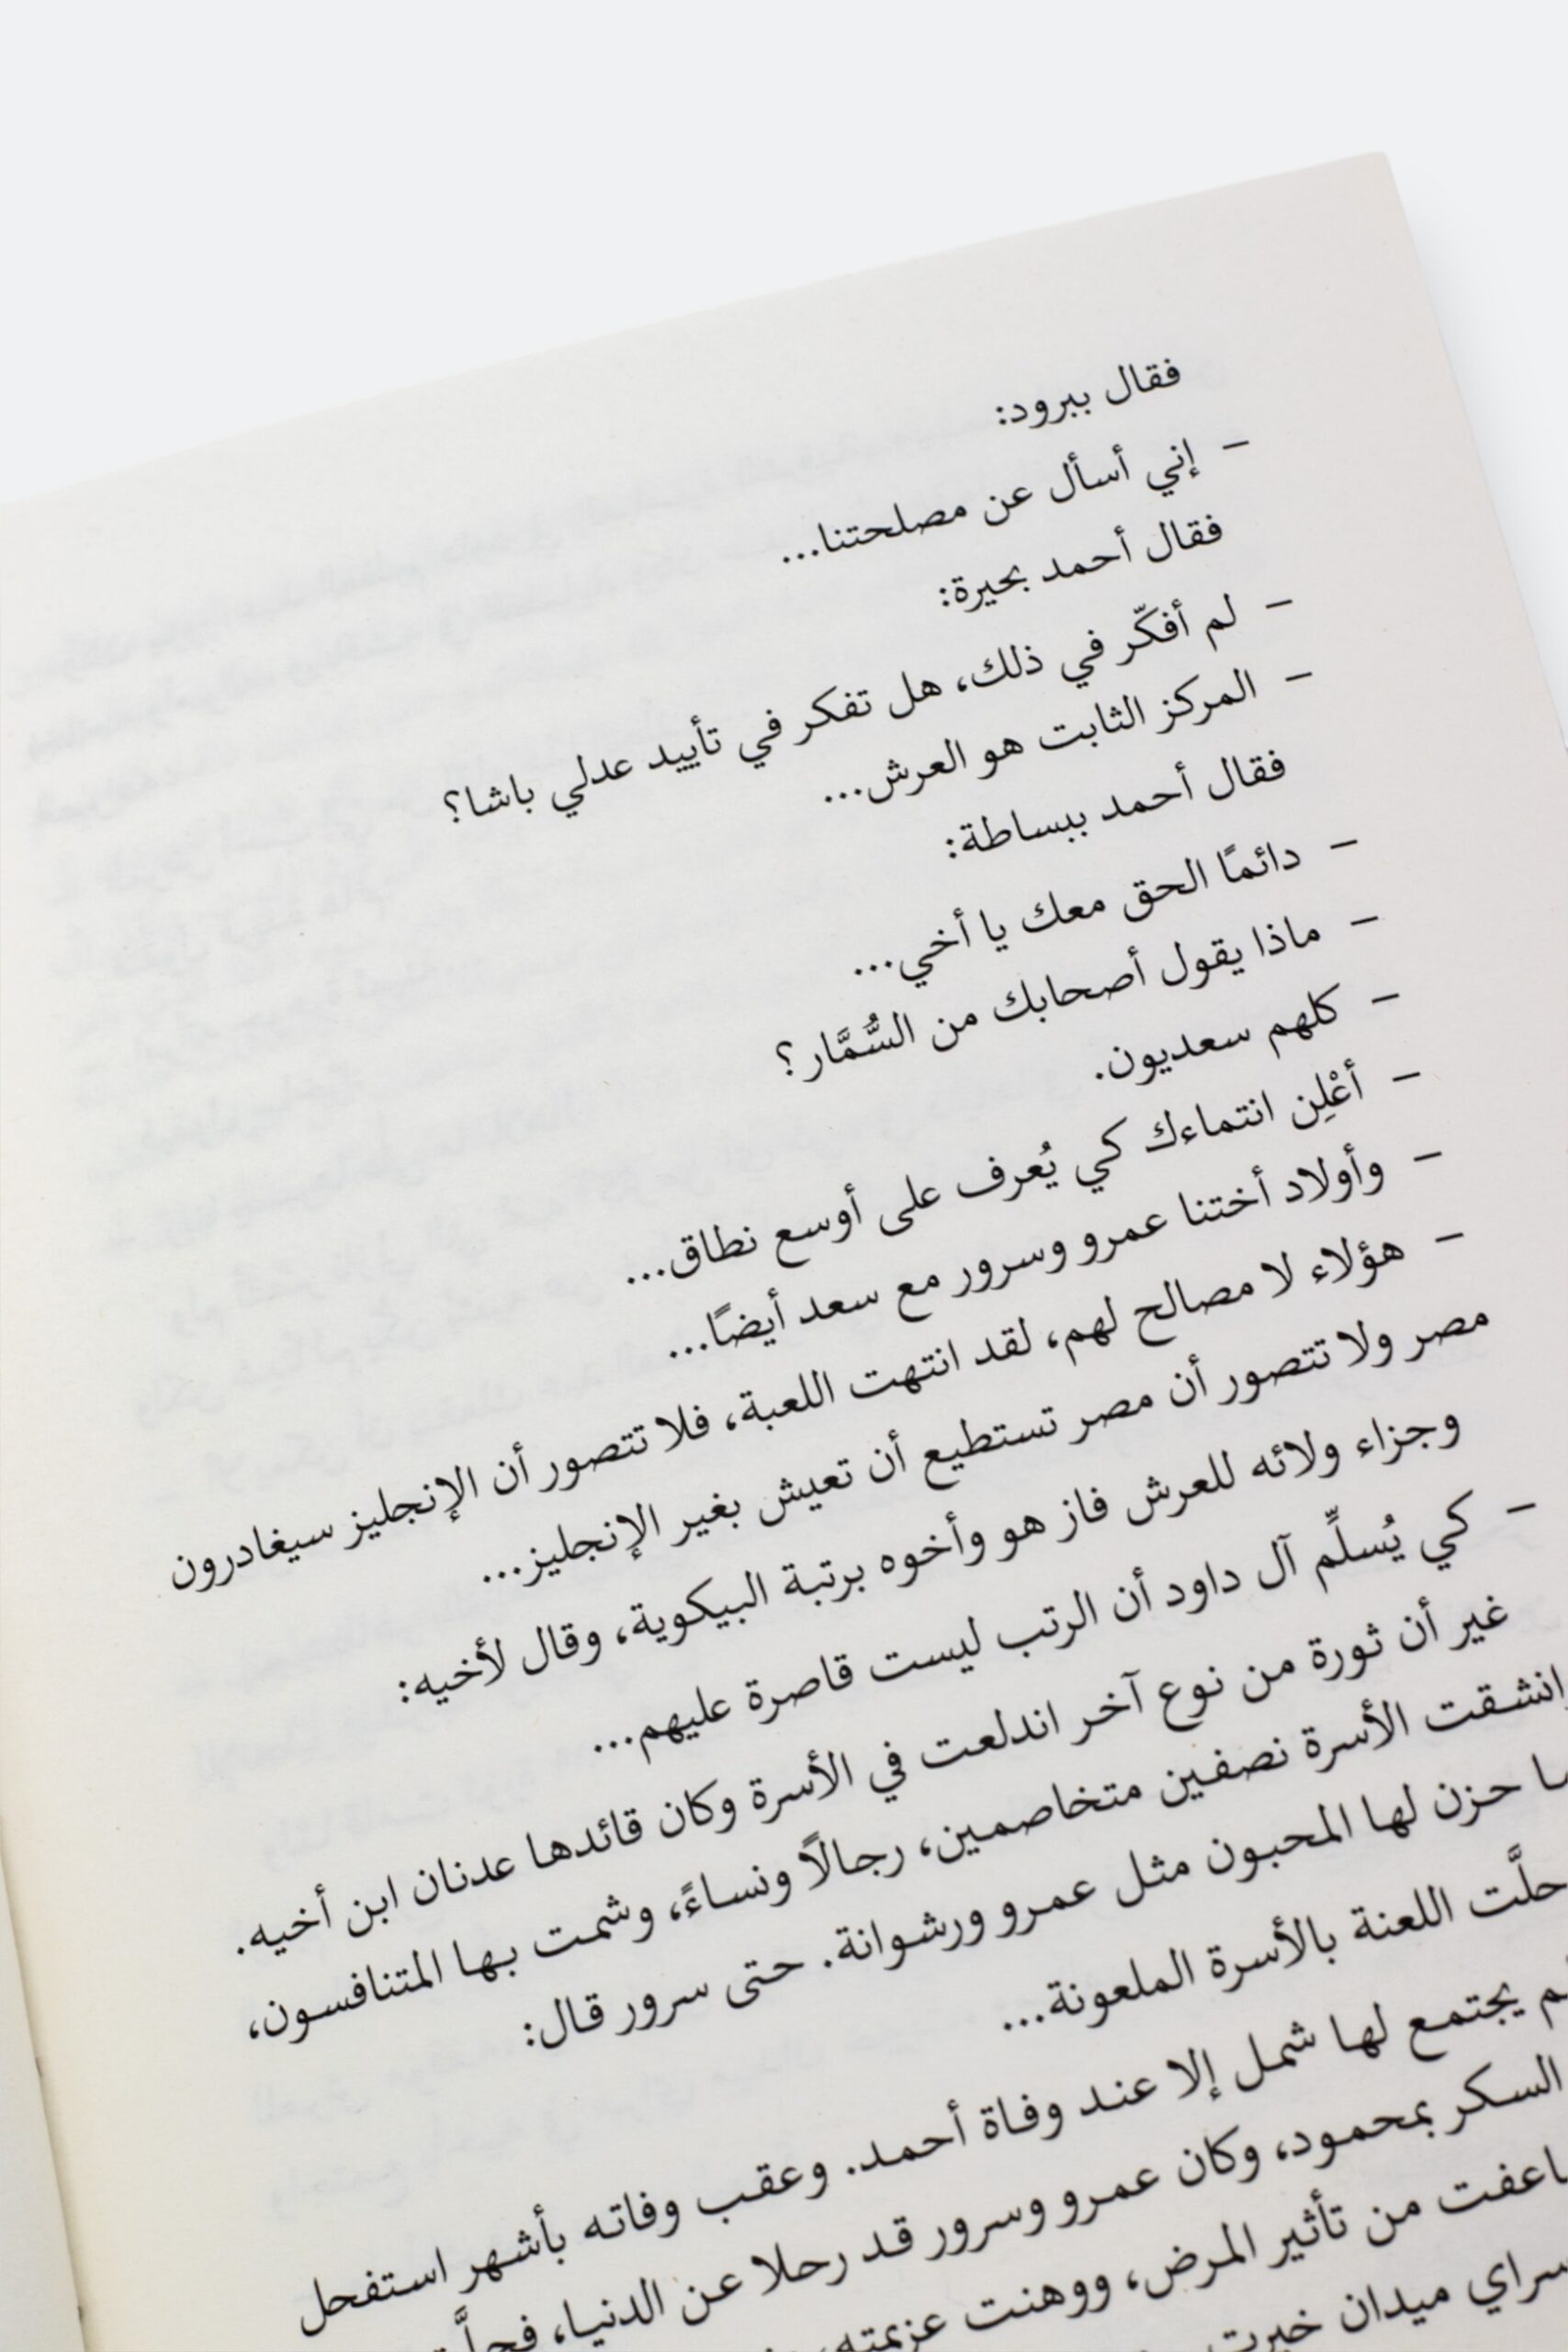 فقال ببرود:
– إني أسأل عن مصلحتنا...
فقال أحمد بحيرة:
– لم أفكّر في ذلك، هل تفكر في تأييد عدلي باشا؟
– المركز الثابت هو العرش...
فقال أحمد ببساطة:
– دائمًا الحق معك يا أخي...
– ماذا يقول أصحابك من السُّمَّار؟
– كلهم سعديون.
– أعْلِن انتماءك كي يُعرف على أوسع نطاق...
– وأولاد أختنا عمرو وسرور مع سعد أيضًا...
– هؤلاء لا مصالح لهم، لقد انتهت اللعبة، فلا تتصور أن الإنجليز سيغادرون
مصر ولا تتصور أن مصر تستطيع أن تعيش بغير الإنجليز...
وجزاء ولائه للعرش فاز هو وأخوه برتبة البيكوية، وقال لأخيه:
– كي يُسلِّم آل داود أن الرتب ليست قاصرة عليهم...
غير أن ثورة من نوع آخر اندلعت في الأسرة وكان قائدها عدنان ابن أخيه.
انشقت الأسرة نصفين متخاصمين، رجالاً ونساءً، وشمت بها المتنافسون،
حزن لها المحبون مثل عمرو ورشوانة. حتى سرور قال:
حلَّت اللعنة بالأسرة الملعونة...
يجتمع لها شمل إلا عند وفاة أحمد. وعقب وفاته بأشهر استفحل
السكر بمحمود، وكان عمرو وسرور قد رحلا عن الدنيا،
من تأثير المرض، ووهنت عزيمته،
سراي ميدان خيرت